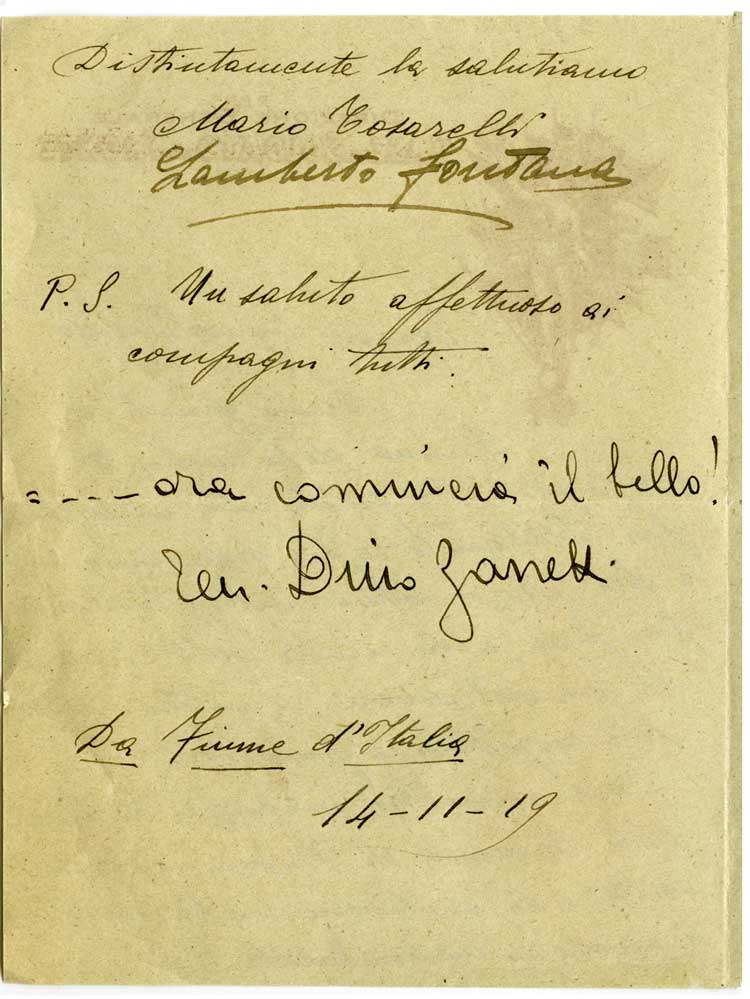 Distintamente la salutiamo
Mario Tosarelli
Lamberto Fontana
P. S. Un saluto affettuoso ai
compagni tutti.
= ---- ora comincia il bello!
Ten. Dino Zanetti.
Da Fiume d'Italia
14-11-19